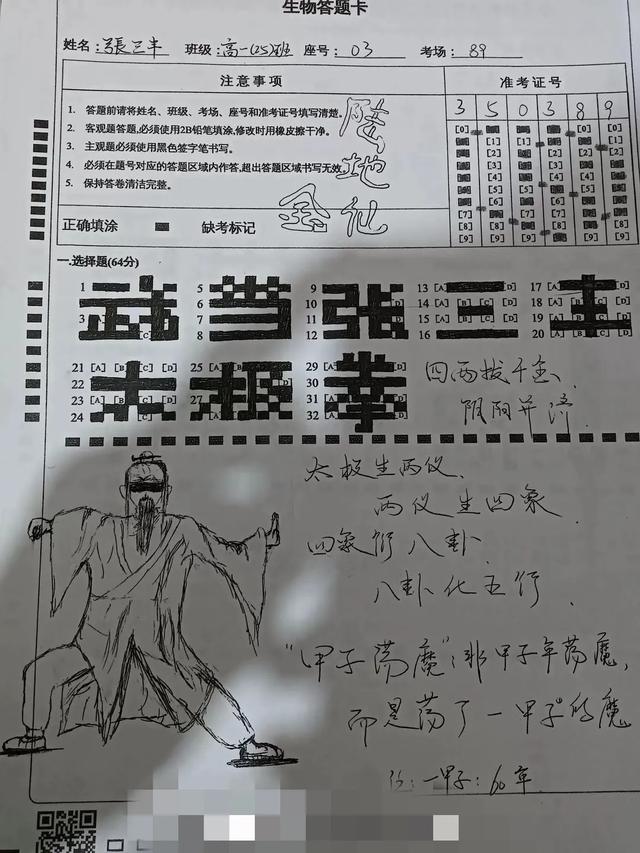 生物答题卡
姓名: 張三丰 班级: 高一(25)班 座号: 03 考场: 89
注意事项
1. 答题前请将姓名、班级、考场、座号和准考证号填写清楚。
2. 客观题答题,必须使用2B铅笔填涂,修改时用橡皮擦干净。
3. 主观题必须使用黑色签字笔书写。
4. 必须在题号对应的答题区域内作答,超出答题区域书写无效。
5. 保持答卷清洁完整。
陸地
金仙
正确填涂 缺考标记
准考证号
3 5 0 3 8 9
一.选择题(64分)
武当张三丰
太极拳
四两拨千金、
阴阳并济.
太极生两仪、
两仪生四象
四象衍八卦、
八卦化五行.
“甲子荡魔”:非甲子年荡魔,
而是荡了一甲子的魔
注:一甲子:60年